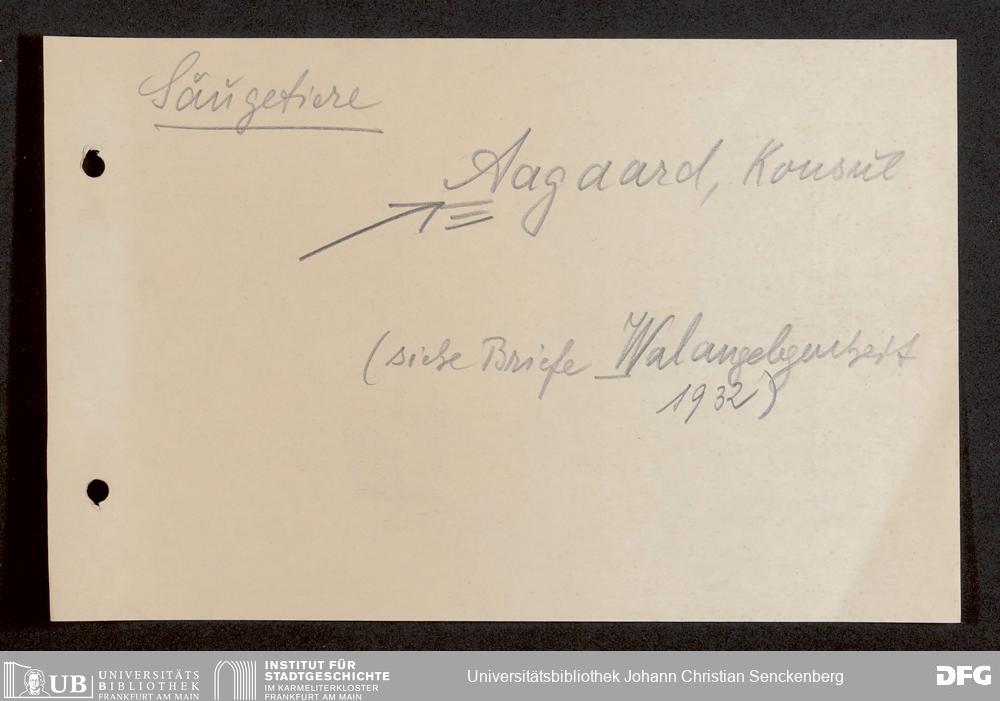 Säugetiere
Aagaard, Konsul
(siehe Briefe Walangelegenheit
1932)
UB UNIVERSITÄTS
BIBLIOTHEK
FRANKFURT AM MAIN
INSTITUT FÜR
STADTGESCHICHTE
IM KARMELITERKLOSTER
FRANKFURT AM MAIN
Universitätsbibliothek Johann Christian Senckenberg
DFG